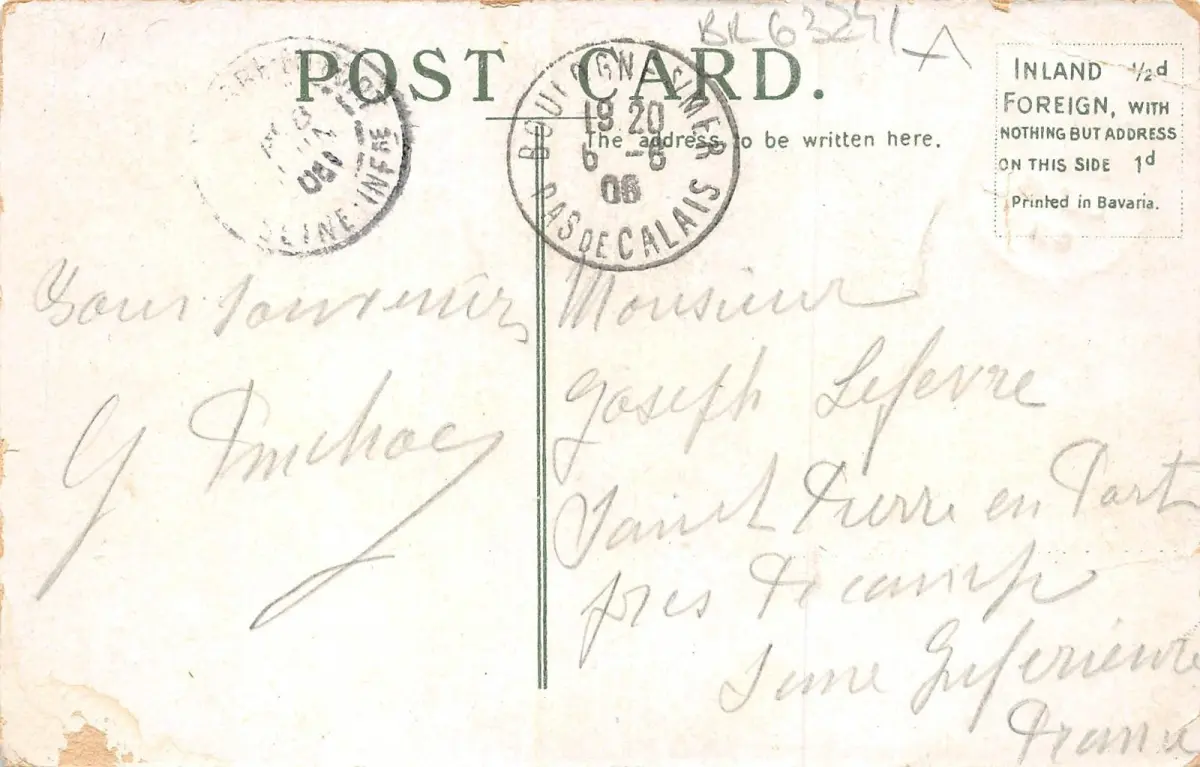 BR 63241
POST CARD.
The address to be written here.
INLAND ½d
FOREIGN, WITH
NOTHING BUT ADDRESS
ON THIS SIDE 1d
Printed in Bavaria.
BOULOGNE S MER
19 20
6 -6
06
PAS DE CALAIS
SEINE-INFRE
Bons souvenirs
G
Monsieur
Joseph Lefevre
Saint Pierre en Port
pres Fecamp
Seine Inferieure
France